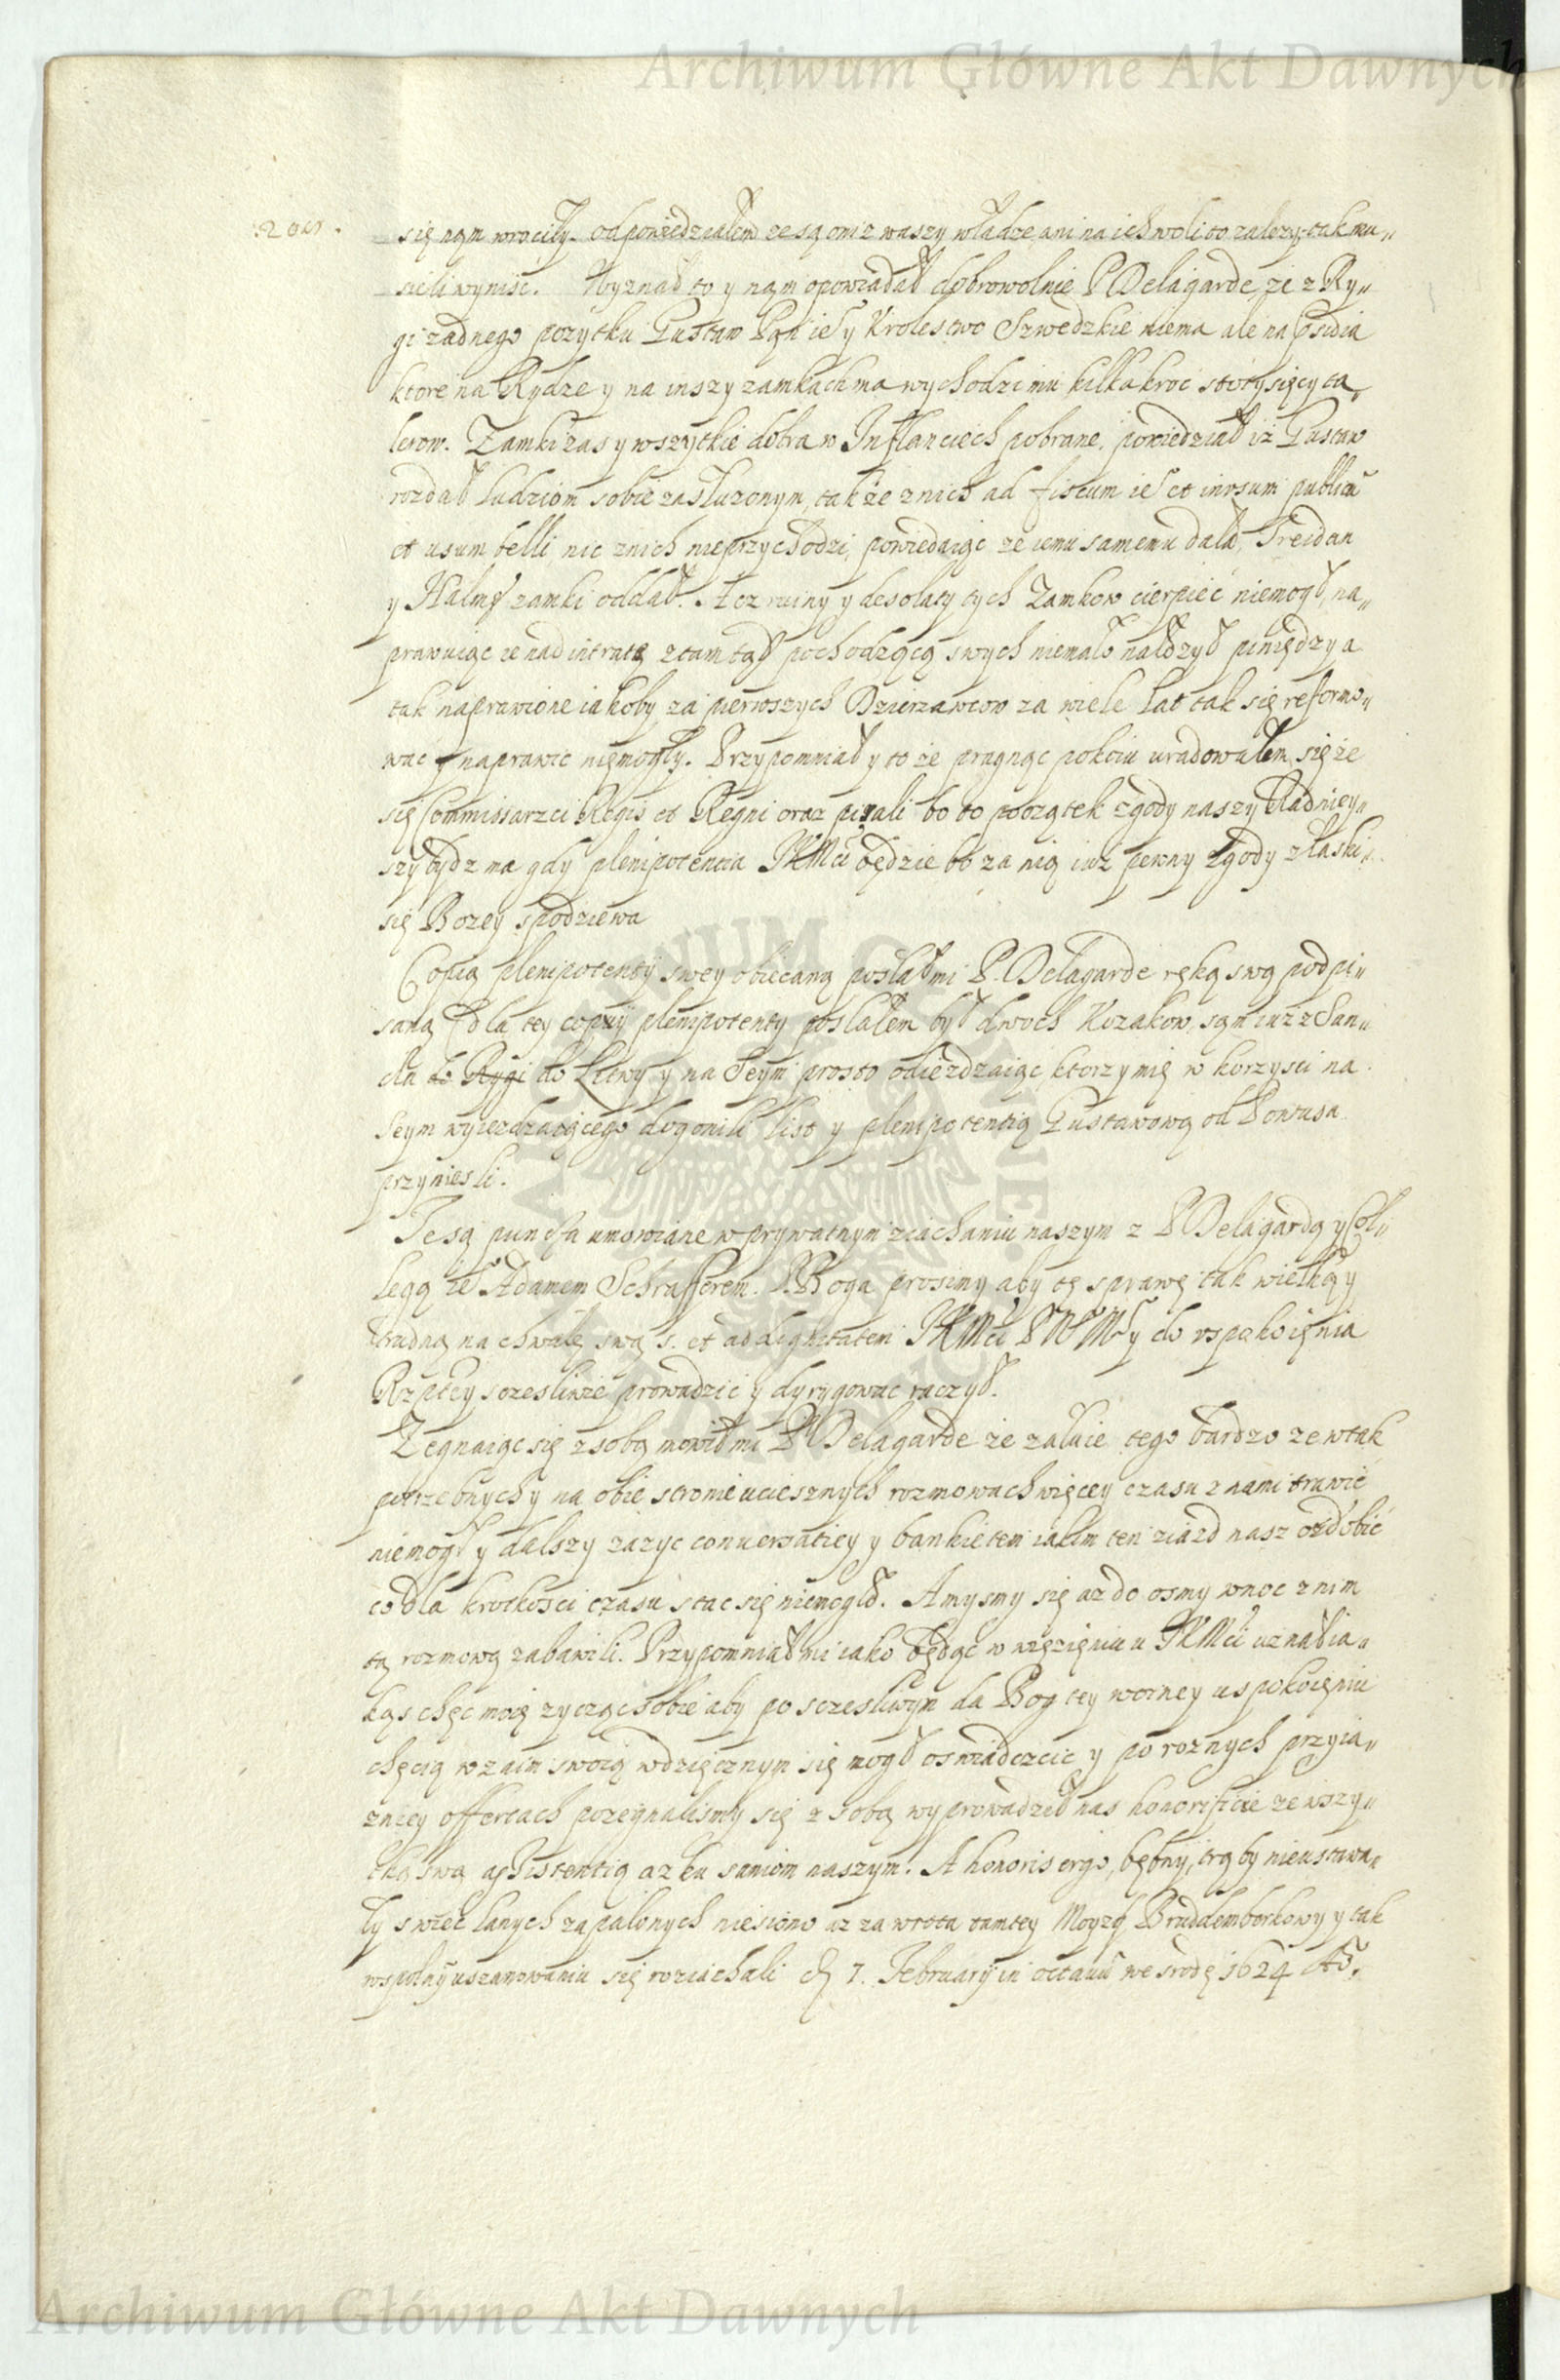 Archiwum Główne Akt Dawnych
się nąm wrociły. odpowiedziałem ze są oni z waszy władze, ani na ich woli to zalezy, tak mu„
sieli wynisc. Wyznał to y nąm opowiadał dobrowolnie P. Delagarde, że z Ry„
gi zadnego pozytku Gustaw Pąn ie° y Krolestwo Szwedzkie niema ale na Psidia
ktore na Rydze y na inszy zamkach ma wychodzi mu kilkakroc sto tysięcy ta„
lerow. Zamki zas y wszytkie dobra w Inflanciech pobrane, powiedział iż Gustaw
rozdał ludziom sobie zasluzonym, także z nich ad fiscum ie° et in usum publicū
et usum belli, nic z nich nieprzychodzi, powiedaiąc ze iemu samemu dał, Treidan
y zamki oddał. A cz ruiny y desolaty tych Zamkow cierpieć niemogł, na„
prawuiąc ie nad intratę ztamtąd pochodzącą swych niemało nałozył piniędzy a
tak naprawione iakoby za pierwszych Dzierzawcow za wiele lat tak się reformo„
wać y naprawic niemogły. Przypomniał y to że pragnąc pokoiu uradowałem się że
się Commissarzci Regis et Regni oraz pisali bo to początek zgody naszy
szy bydz ma gdy plenipotencia JKMci będzie bo za nią iuż pewny zgody z łaski„
się Bozey spodziewa
Copią plenipotentÿ swey obiecaną posłał mi P. Delagarde ręką swą podpi„
saną (dla tey copiÿ plenipotenty posłałem był dwoch Kozakow, sąm iuz z
do Rygi do Litwy y na Seym prosto odiezdzaiąc, ktorzy mię w korzysci na
Seym wyiezdzaiącego dogonili list y plenipotentią Gustawową od
przyniesli.
Te są puncta umowiane w prywatnym ziachaniu naszym z P. Delagardą y Col„
legą ie° Adamem Schrafferem. P. Boga prosimy aby tę sprawę tak wielką y
trudną na chwałę swą s. et ad dignitatem JKMci PNM° y do uspokoięnia
Rzptey sczesliwie prowadzić y dyrygowac raczył.
Zegnaiąc się z sobą mowił mi P. Delagarde że załuie tego bardzo ze w tak
potrzebnych y na obie stronie uciesznych rozmowach więcey czasu z nami trawić
niemogł y dalszy zazyc conuersatiey y bankietem iakim ten ziazd nasz ozdobić
co dla krotkosci czasu stac się niemogło. A mysmy się az do osmy wnoc z nim
tą rozmową zabawili. Przypomniał mi iako będąc w więzięniu u JKMci uznał ia„
kąs chęc moię zycząc sobie aby po sczesliwym da Bog tey woiney uspokoięniu
chęcią wzaim swoią wdzięcznym się mogł oswiadczcic y po roznych przyia„
zniey offertach pozegnalismy się z sobą wyprowadzeł nas honorificie ze wszy„
tką swą assistentią az ku saniom naszym. A honoris ergo, bębny, trąby nieustawa„
ły swiec lanych zapalonych niesiono az za wrota tamtey Moyzy y tak
wspolny uszanowaniu się roziachali d. 7. Februarÿ in octauū we srodę 1624 A°.
Archiwum Główne Akt Dawnych